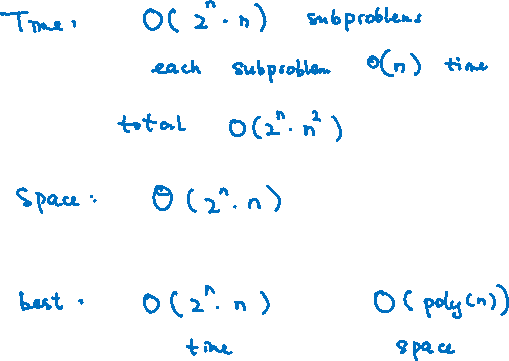 Time: O(2^n · n) subproblems
each subproblem O(n) time
total O(2^n · n^2)
Space: Θ(2^n · n)
best: O(2^n · n) O(poly(n))
time space